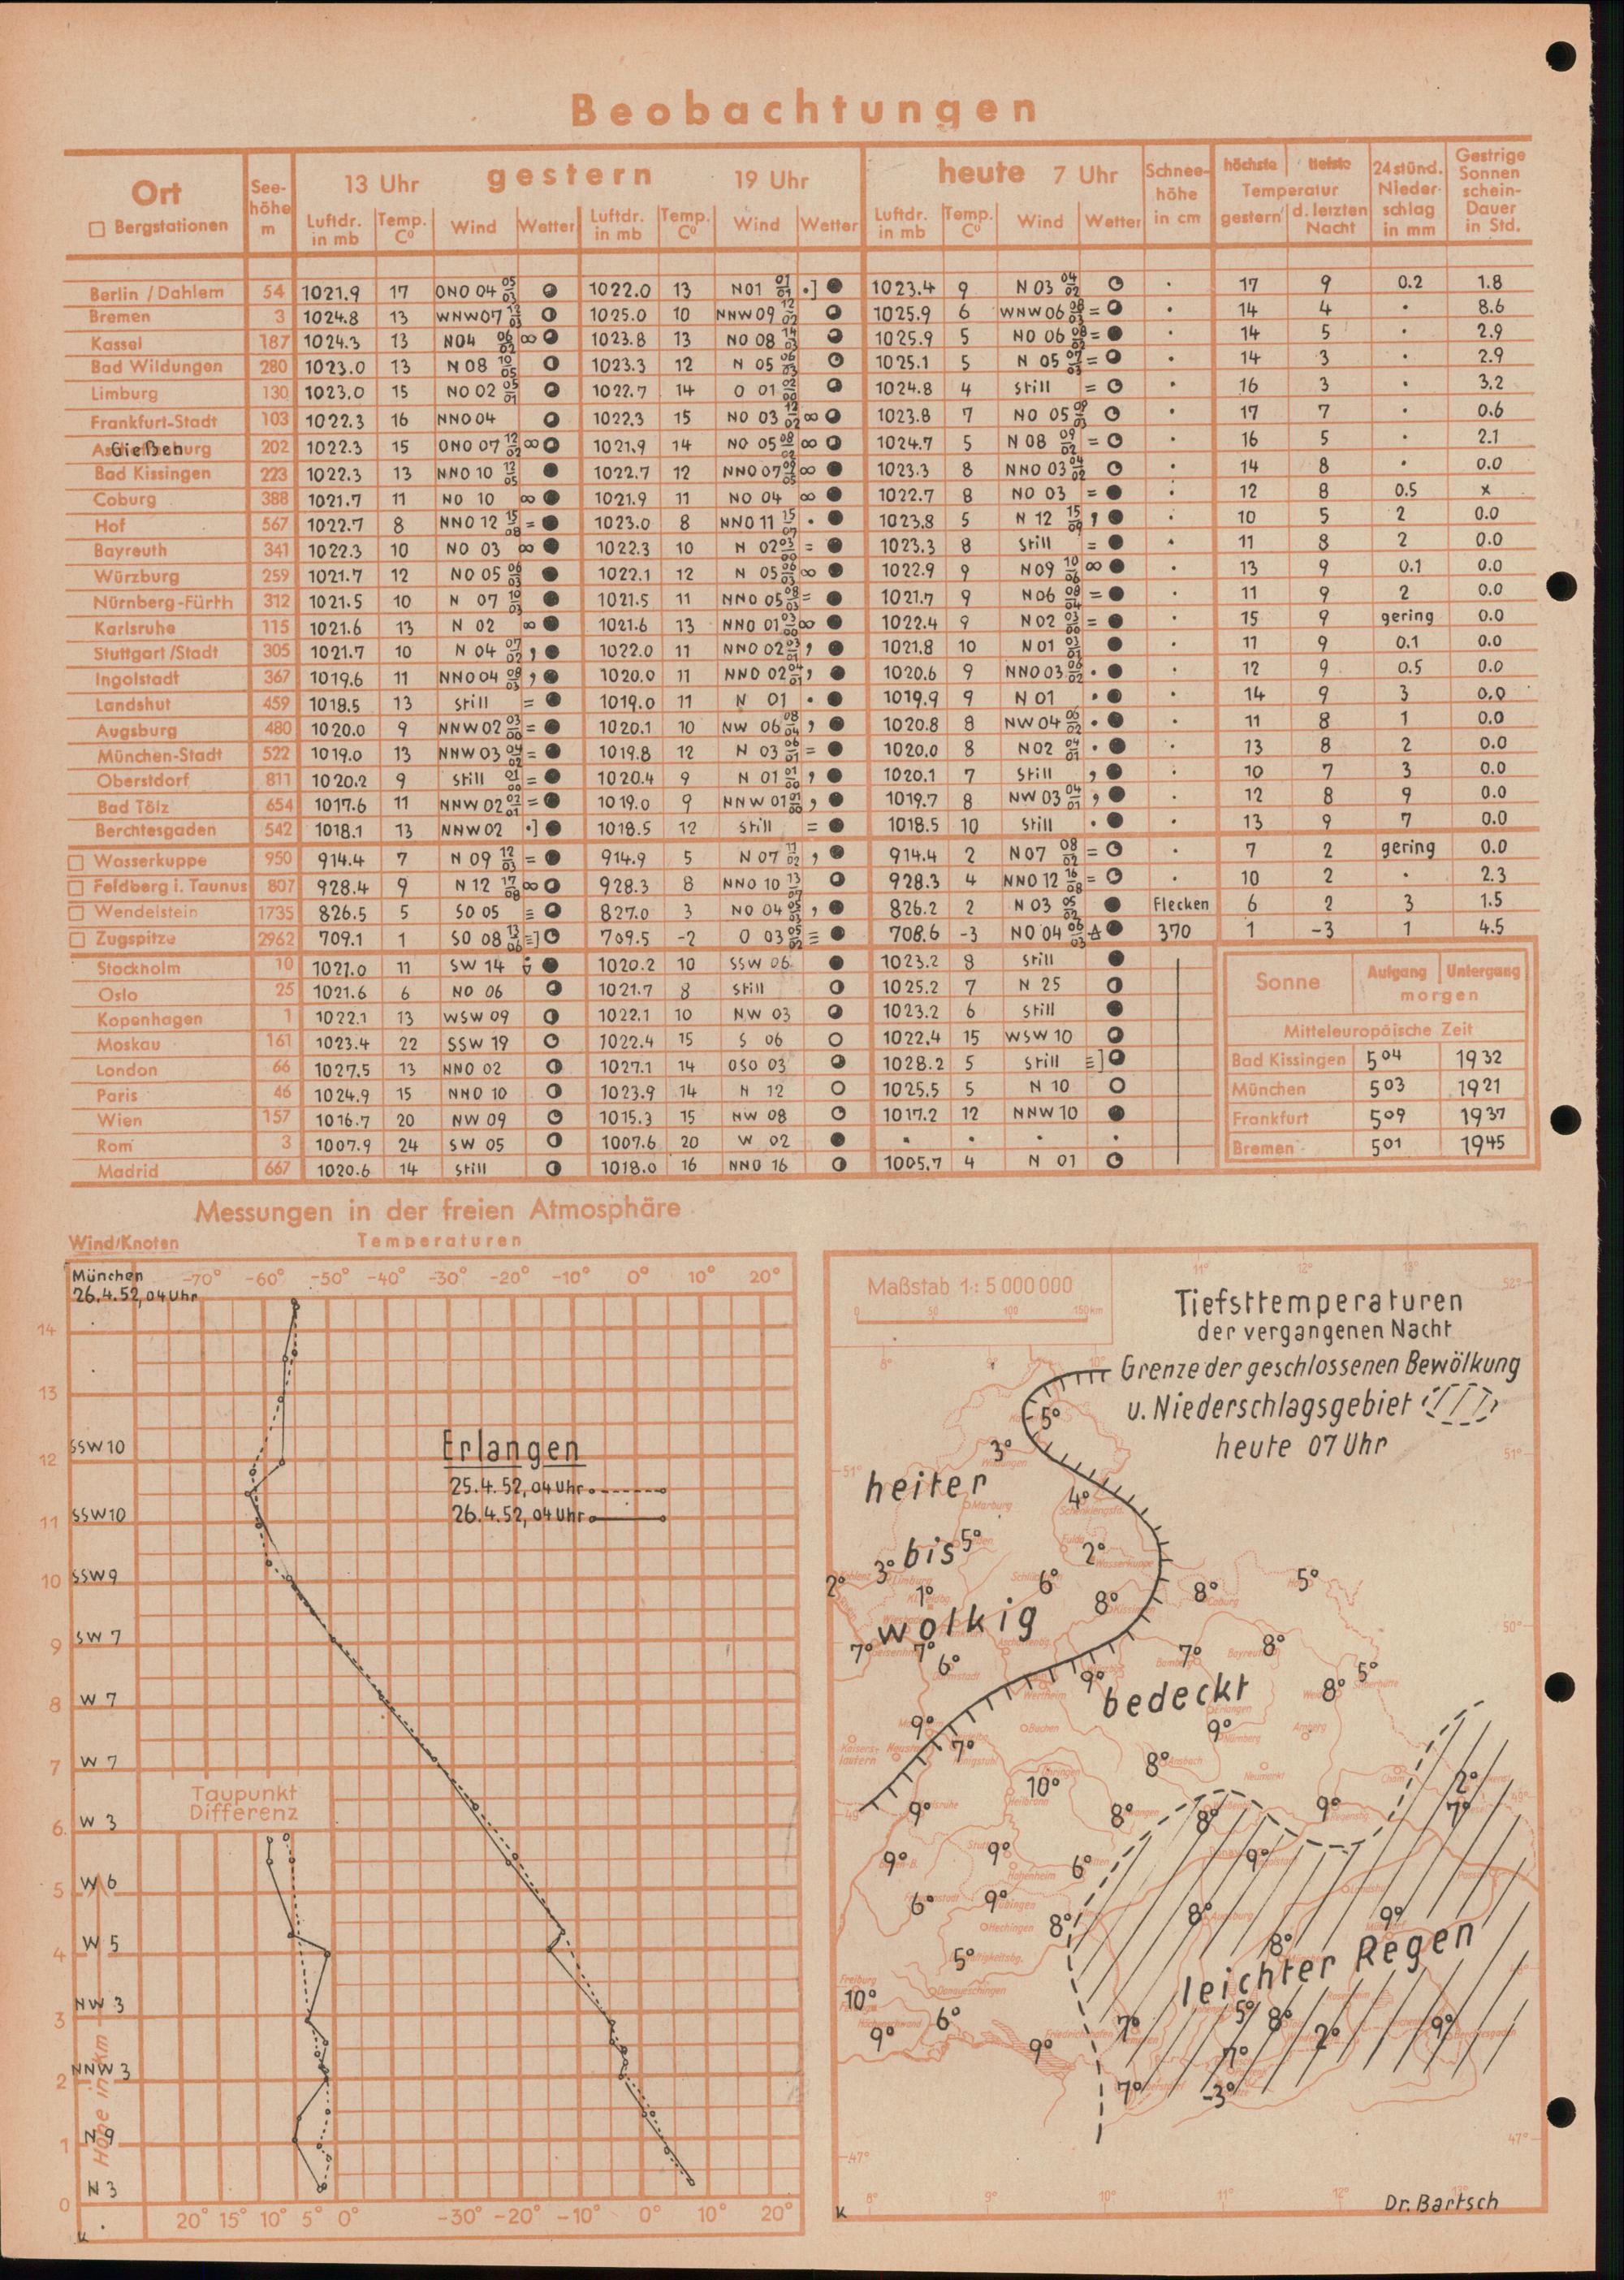 Beobachtungen
Ort
□ Bergstationen
See-
höhe
m
gestern
13 Uhr 19 Uhr
heute 7 Uhr
Luftdr. in mb Temp. C° Wind Wetter Luftdr. in mb Temp. C° Wind Wetter Luftdr. in mb Temp. C° Wind Wetter
Schnee-
höhe
in cm
höchste tiefste
Temperatur
gestern d. letzten
Nacht
24stünd.
Nieder-
schlag
in mm
Gestrige
Sonnen
schein-
Dauer
in Std.
Berlin / Dahlem 54 1021.9 17 ONO 04 05/03 1022.0 13 N01 01/01 •] 1023.4 9 N 03 04/02 • 17 9 0.2 1.8
Bremen 3 1024.8 13 WNW07 12/03 1025.0 10 NNW09 12/02 1025.9 6 WNW 06 08/03 = • 14 4 • 8.6
Kassel 187 1024.3 13 NO4 06/02 ∞ 1023.8 13 NO 08 14/03 1025.9 5 NO 06 08/02 = • 14 5 • 2.9
Bad Wildungen 280 1023.0 13 N 08 10/05 1023.3 12 N 05 06/03 1025.1 5 N 05 07/03 = • 14 3 • 2.9
Limburg 130 1023.0 15 NO 02 05/01 1022.7 14 O 01 02/00 1024.8 4 Still = • 16 3 • 3.2
Frankfurt-Stadt 103 1022.3 16 NNO04 1022.3 15 NO 03 12/02 ∞ 1023.8 7 NO 05 09/03 • 17 7 • 0.6
Gießen 202 1022.3 15 ONO 07 12/02 ∞ 1021.9 14 NO 05 08/02 ∞ 1024.7 5 N 08 09/02 = • 16 5 • 2.1
Bad Kissingen 223 1022.3 13 NNO 10 12/05 1022.7 12 NNO07 09/05 ∞ 1023.3 8 NNO 03 04/02 • 14 8 • 0.0
Coburg 388 1021.7 11 NO 10 ∞ 1021.9 11 NO 04 ∞ 1022.7 8 NO 03 = • 12 8 0.5 x
Hof 567 1022.7 8 NNO 12 15/08 = 1023.0 8 NNO 11 15/07 • 1023.8 5 N 12 15/09 , • 10 5 2 0.0
Bayreuth 341 1022.3 10 NO 03 ∞ 1022.3 10 N 02 03/00 = 1023.3 8 Still = • 11 8 2 0.0
Würzburg 259 1021.7 12 NO 05 06/03 1022.1 12 N 05 06/03 ∞ 1022.9 9 N09 10/06 ∞ • 13 9 0.1 0.0
Nürnberg-Fürth 312 1021.5 10 N 07 10/03 1021.5 11 NNO 05 08/03 = 1021.7 9 N06 08/04 = • 11 9 2 0.0
Karlsruhe 115 1021.6 13 N 02 ∞ 1021.6 13 NNO 01 03/00 ∞ 1022.4 9 N02 03/00 = • 15 9 gering 0.0
Stuttgart /Stadt 305 1021.7 10 N 04 07/02 , 1022.0 11 NNO 02 03/01 , 1021.8 10 N01 03/01 • 11 9 0.1 0.0
Ingolstadt 367 1019.6 11 NNO04 08/03 , 1020.0 11 NNO 02 04/01 , 1020.6 9 NNO03 06/02 • • 12 9 0.5 0.0
Landshut 459 1018.5 13 Still = 1019.0 11 N 01 • 1019.9 9 N 01 • • 14 9 3 0.0
Augsburg 480 1020.0 9 NNW02 03/00 = 1020.1 10 NW 06 08/04 , 1020.8 8 NW04 06/02 • • 11 8 1 0.0
München-Stadt 522 1019.0 13 NNW03 04/02 = 1019.8 12 N 03 06/01 = 1020.0 8 N02 04/01 • • 13 8 2 0.0
Oberstdorf 811 1020.2 9 Still 01/00 = 1020.4 9 N 01 01/00 , 1020.1 7 Still , • 10 7 3 0.0
Bad Tölz 654 1017.6 11 NNW 02 02/01 = 1019.0 9 NNW 01 01/00 , 1019.7 8 NW 03 04/01 , • 12 8 9 0.0
Berchtesgaden 542 1018.1 13 NNW02 •] 1018.5 12 Still = 1018.5 10 Still • • 13 9 7 0.0
□ Wasserkuppe 950 914.4 7 N 09 12/03 = 914.9 5 N 07 11/02 , 914.4 2 N07 08/02 = • 7 2 gering 0.0
□ Feldberg i. Taunus 807 928.4 9 N 12 17/08 ∞ 928.3 8 NNO 10 13/07 928.3 4 NNO 12 16/08 = • 10 2 • 2.3
□ Wendelstein 1735 826.5 5 SO 05 ≡ 827.0 3 NO 04 05/03 , 826.2 2 N 03 05/02 Flecken 6 2 3 1.5
□ Zugspitze 2962 709.1 1 SO 08 13/06 ≡] 709.5 -2 O 03 05/02 ≡ 708.6 -3 NO 04 06/03 370 1 -3 1 4.5
Stockholm 10 1021.0 11 SW 14 1020.2 10 SSW 06 1023.2 8 Still
Oslo 25 1021.6 6 NO 06 1021.7 8 Still 1025.2 7 N 25
Kopenhagen 1 1022.1 13 WSW 09 1022.1 10 NW 03 1023.2 6 Still
Moskau 161 1023.4 22 SSW 19 1022.4 15 S 06 1022.4 15 WSW 10
London 66 1027.5 13 NNO 02 1027.1 14 OSO 03 1028.2 5 Still ≡]
Paris 46 1024.9 15 NNO 10 1023.9 14 N 12 1025.5 5 N 10
Wien 157 1016.7 20 NW 09 1015.3 15 NW 08 1017.2 12 NNW 10
Rom 3 1007.9 24 SW 05 1007.6 20 W 02 • • • •
Madrid 667 1020.6 14 Still 1018.0 16 NNO 16 1005.7 4 N 01
Sonne Aufgang Untergang
morgen
Mitteleuropäische Zeit
Bad Kissingen 5 04 19 32
München 5 03 19 21
Frankfurt 5 09 19 37
Bremen 5 01 19 45
Messungen in der freien Atmosphäre
Wind/Knoten Temperaturen
München
26.4.52, 04 Uhr
-70° -60° -50° -40° -30° -20° -10° 0° 10° 20°
14
13
SSW 10
12
SSW10
11
SSW9
10
SW 7
9
W 7
8
W 7
7
W 3
6
W 6
5
W 5
4
NW 3
3
NNW 3
2
N 9
1
N 3
0
Höhe in km
Erlangen
25.4.52, 04 Uhr
26.4.52, 04 Uhr
Taupunkt
Differenz
20° 15° 10° 5° 0° -30° -20° -10° 0° 10° 20°
K
Maßstab 1:5 000 000
0 50 100 150 km
Tiefsttemperaturen
der vergangenen Nacht
Grenze der geschlossenen Bewölkung
u. Niederschlagsgebiet
heute 07 Uhr
11° 12° 13° 52°
51° 51°
50°
49° 49°
47° 47°
8° 9° 10° 11° 12°
5°
3°
heiter
4°
bis 5°
3° 2°
2° 1° 6° 8° 8° 5°
wolkig
7° 7° 6° 7° 8°
9° 8° 5°
bedeckt
9° 7° 9°
10° 8° 2°
9° 8° 8° 9° 7°
9° 9° 6° 9°
6° 9° 8° 8° 9°
5° 8°
leichter Regen
10° 6° 7° 5° 8° 2° 9°
9° 9° 7°
7° -3°
K
Dr. Bartsch